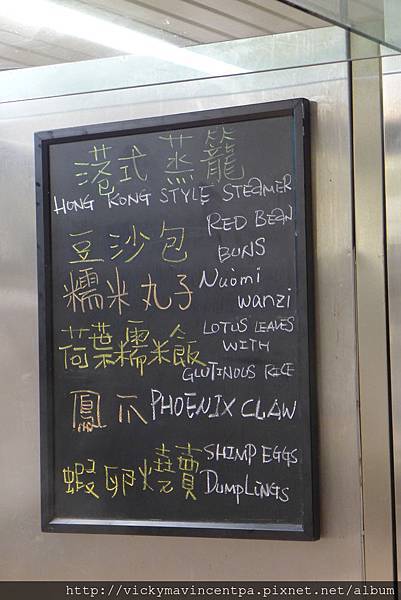 港式 蒸籠
HONG KONG STYLE STEAMER
豆沙包
RED BEAN
BUNS
糯米丸子
Nuomi
wanzi
荷葉糯米飯
LOTUS LEAVES
WITH
GLUTINOUS RICE
鳳爪 PHOENIX CLAW
蝦卵燒賣
SHIMP EGGS
DUMPLINGS
http://vickymavincentpa.pixnet.net/album